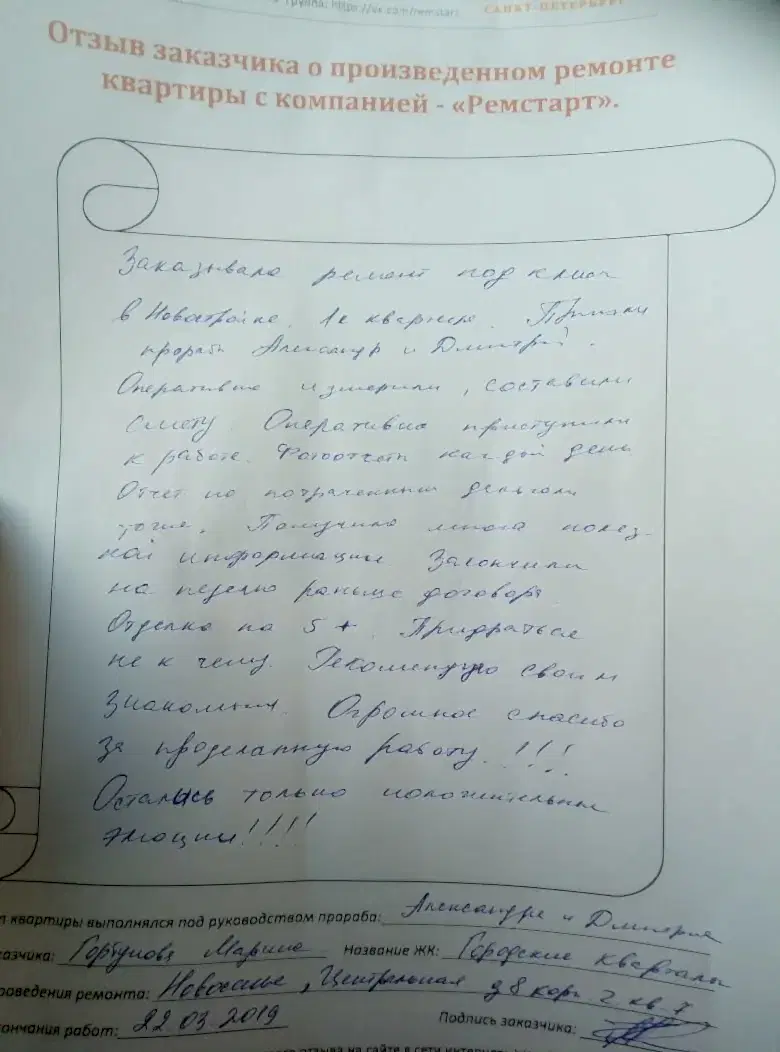 группа: https://vk.com/remstart
САНКТ-ПЕТЕРБУРГ
Отзыв заказчика о произведенном ремонте
квартиры с компанией - «Ремстарт».
Заказывала ремонт под ключ
в Новостройке. 1к квартире.
прорабы Александр и Дмитрий.
Оперативно измерили, составили
смету. Оперативно приступили
к работе. Фотоотчеты каждый день
Отчет по потраченным деньгам
тоже. Получила много полез-
ной информации Закончили
на неделю раньше договора
Отделка на 5+. Придраться
не к чему. Рекомендую своим
знакомым. Огромное спасибо
за проделанную работу!!!
Остались только положительные
эмоции!!!!
квартиры выполнялся под руководством прораба: Александра и Дмитрия
азчика: Марина Название ЖК: Городские кварталы
роведения ремонта: Новоселье, Центральная д 8 корп 2 кв. 7
ончания работ: 22.03.2019 Подпись заказчика:
отзыва на сайте в сети интернет